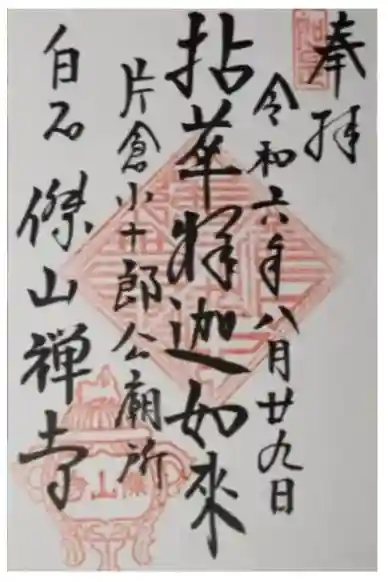 奉拝
令和六年八月廿九日
拈華釋迦如來
片倉小十郎公廟所
白石 傑山禅寺
傑山寺